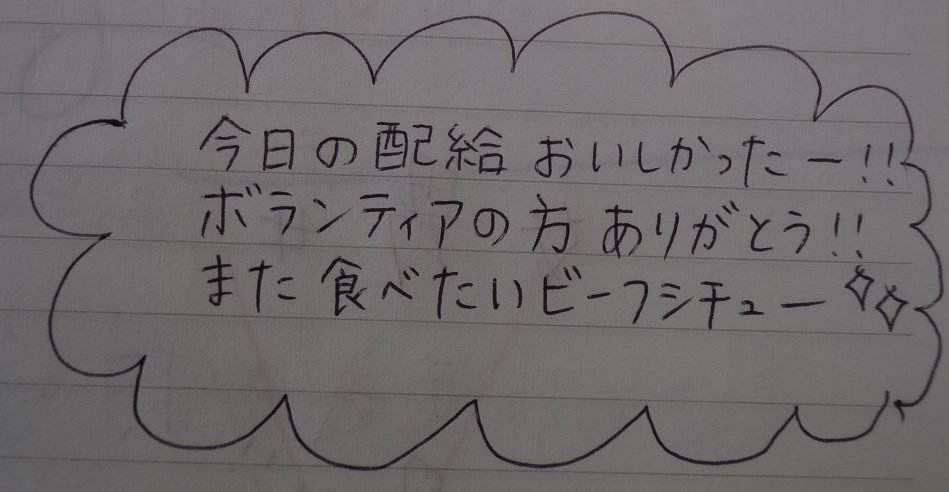 今日の配給おいしかったー!!
ボランティアの方ありがとう!!
また食べたいビーフシチュー✧✧